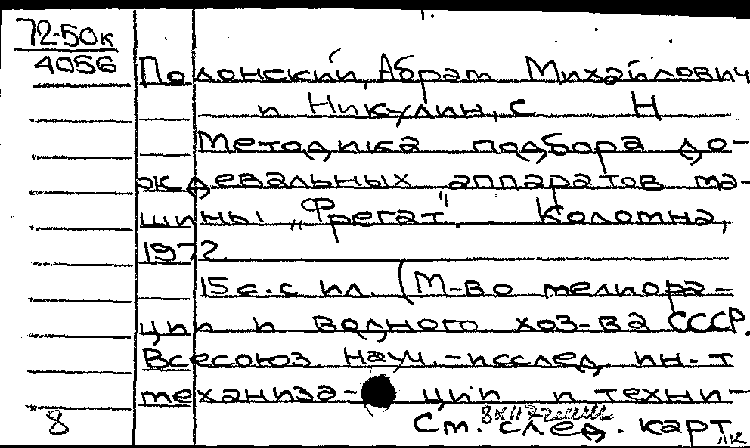 72-50к
4056
Полонский, Абрам Михайлович
и Никулин, С Н
Методика подбора до-
ждевальных аппаратов ма-
шины „Фрегат". Коломна,
1972.
15 с. с ил. (М-во мелиора-
ции и водного хоз-ва СССР.
Всесоюз. науч.-исслед. ин-т
механиза- ции и техни-
8
См. след. карт.